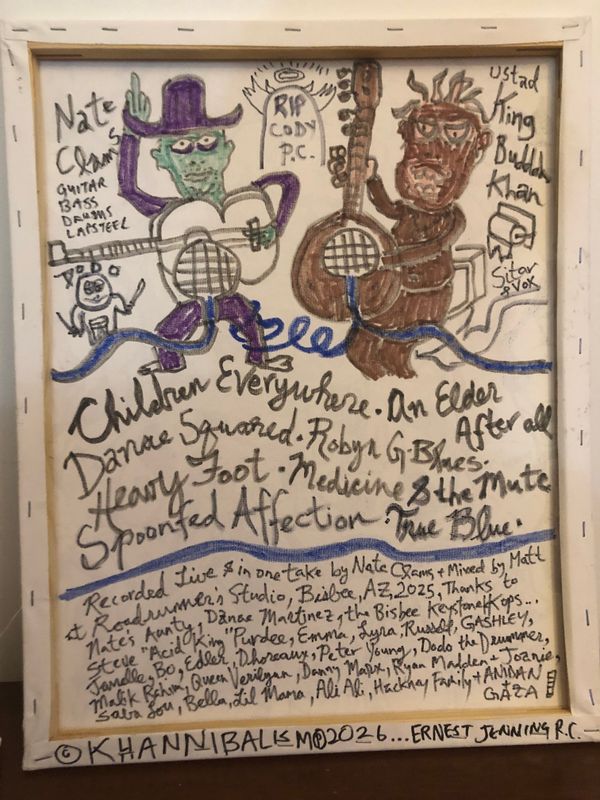 Nate
Clams
GUITAR
BASS
DRUMS
LAPSTEEL
DODO
RIP
CODY
P.C.
Ustad
King
Buddah
Khan
Sitar
& VOX
Children Everywhere · An Elder
After all
Danae Squared · Robyn G Blues ·
Heavy Foot · Medicine & the Mute
Spoonfed Affection · True Blue ·
Recorded Live & in one take by Nate Clams + Mixed by Matt
at Roadrunner's Studio, Bisbee, AZ, 2025, Thanks to
Nate's Aunty, Danae Martinez, the Bisbee Keystone Kops...
Steve "Acid King" Purdee, Emma, Lyra, Russell, GASHLEY,
Bo, Edler, Dhoreaux, Peter Young, Dodo the Drummer,
Malik Rahim, Queen Verilyan, Danny Marx, Ryan Madden +
Saba Lou, Bella, Lil Mama, Ali Ali, Hackney Family +
GAZA
© KHANNIBALISM ℗ 2026... ERNEST JENNING R.C.